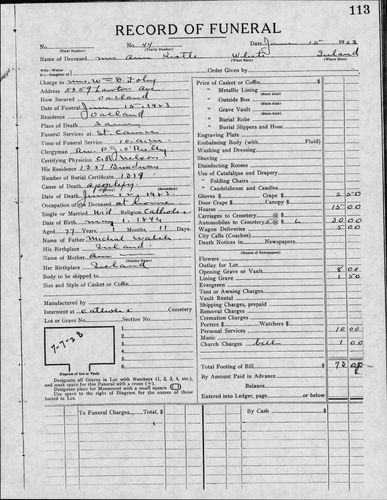 113
RECORD OF FUNERAL
No. No. 44 Date June 15 1923
(Total Number) (Yearly Number)
Name of Deceased Mrs. Ann White Ireland
Charge to Mrs. Wm D. Foley
Address 5359 Lawton Ave
How Secured Oakland
Date of Funeral June 15, 1923
Residence Oakland
Place of Death Same
Funeral Services at
Time of Funeral Service 10 a.m.
Clergyman Rev. P. J. O'Reilly
Certifying Physician Nelson
His Residence 1307 Broadway
Number of Burial Certificate 1219
Cause of Death apoplexy
Date of Death June 12, 1923
Occupation of Deceased at home
Single or Married Wid Religion Catholic
Date of Birth May 1, 1846
Aged 77 Years 1 Months 11 Days
Name of Father Michael Walsh
His Birthplace Ireland
Name of Mother Ann —
Her Birthplace Ireland
Body to be shipped to
Size and Style of Casket or Coffin
Manufactured by
Interment at Catholic Cemetery
Lot or Grave No. Section No.
7-7-23
1.
2.
3.
4.
5.
6.
7.
Diagram of Lot or Vault
Designate all Graves in Lot with Numbers (1, 2, 3, 4, etc.),
and mark space for this Funeral with a cross (+).
Designate place for Monument with a small square
Use space to the right of Diagram for the names of those
buried in Lot.
To Funeral Charges, Total, $
Order Given by
Price of Casket or Coffin $
" Metallic Lining
" Outside Box
" Grave Vault
" Burial Robe
" Burial Slippers and Hose
Engraving Plate
Embalming Body (with Fluid)
Washing and Dressing
Shaving
Disinfecting Rooms
Use of Catafalque and Drapery
" Folding Chairs
" Candelabrum and Candles
Gloves $ Crape $ 2 50
Door Crape $ Canopy $
Hearse 15 00
Carriages to Cemetery @ $
Automobiles to Cemetery 5 @ $ 6 30 00
Wagon Deliveries 5 00
City Calls (Coaches)
Death Notices in Newspapers
(Names of Newspapers)
Flowers
Outlay for Lot
Opening Grave or Vault 8 00
Lining Grave 1 50
Evergreen
Tent or Awning Charges
Vault Rental
Shipping Charges, prepaid
Removal Charges
Cremation Charges
Porters $ Watchers $
Personal Services 10 00
Music
Church Charges bell 1 00
Total Footing of Bill $ 73 00
By Amount Paid in Advance
Balance
Entered into Ledger, page or below
By Cash $